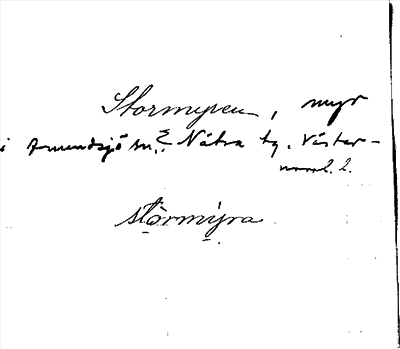 Stormyren, myr
i Amundsjö sn. Nätra tg. Väster-
norrl. l.
stòrmýra